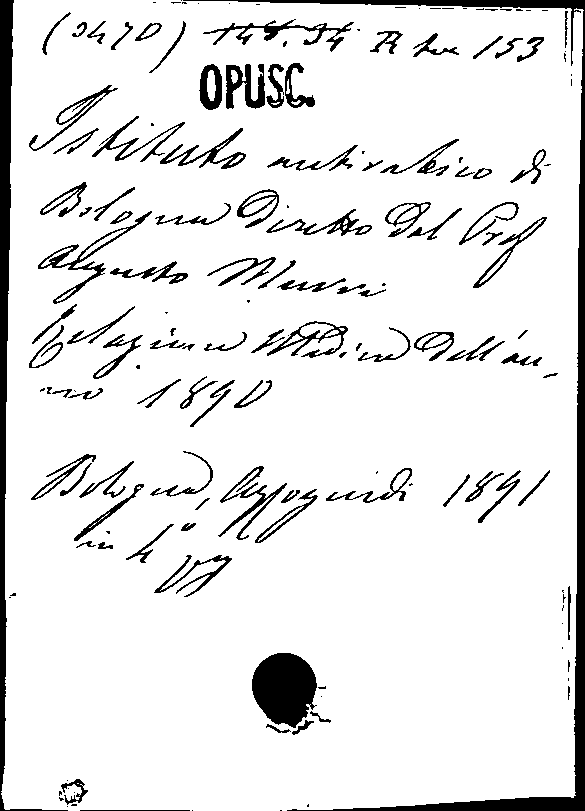 (3470) 148.34 R 153
OPUSC.
Istituto antirabico di
Bologna Diretto dal Prof
Augusto Murri
Relazione Medica dell'an-
no 1890
Bologna, Azzoguidi 1891
in 4°